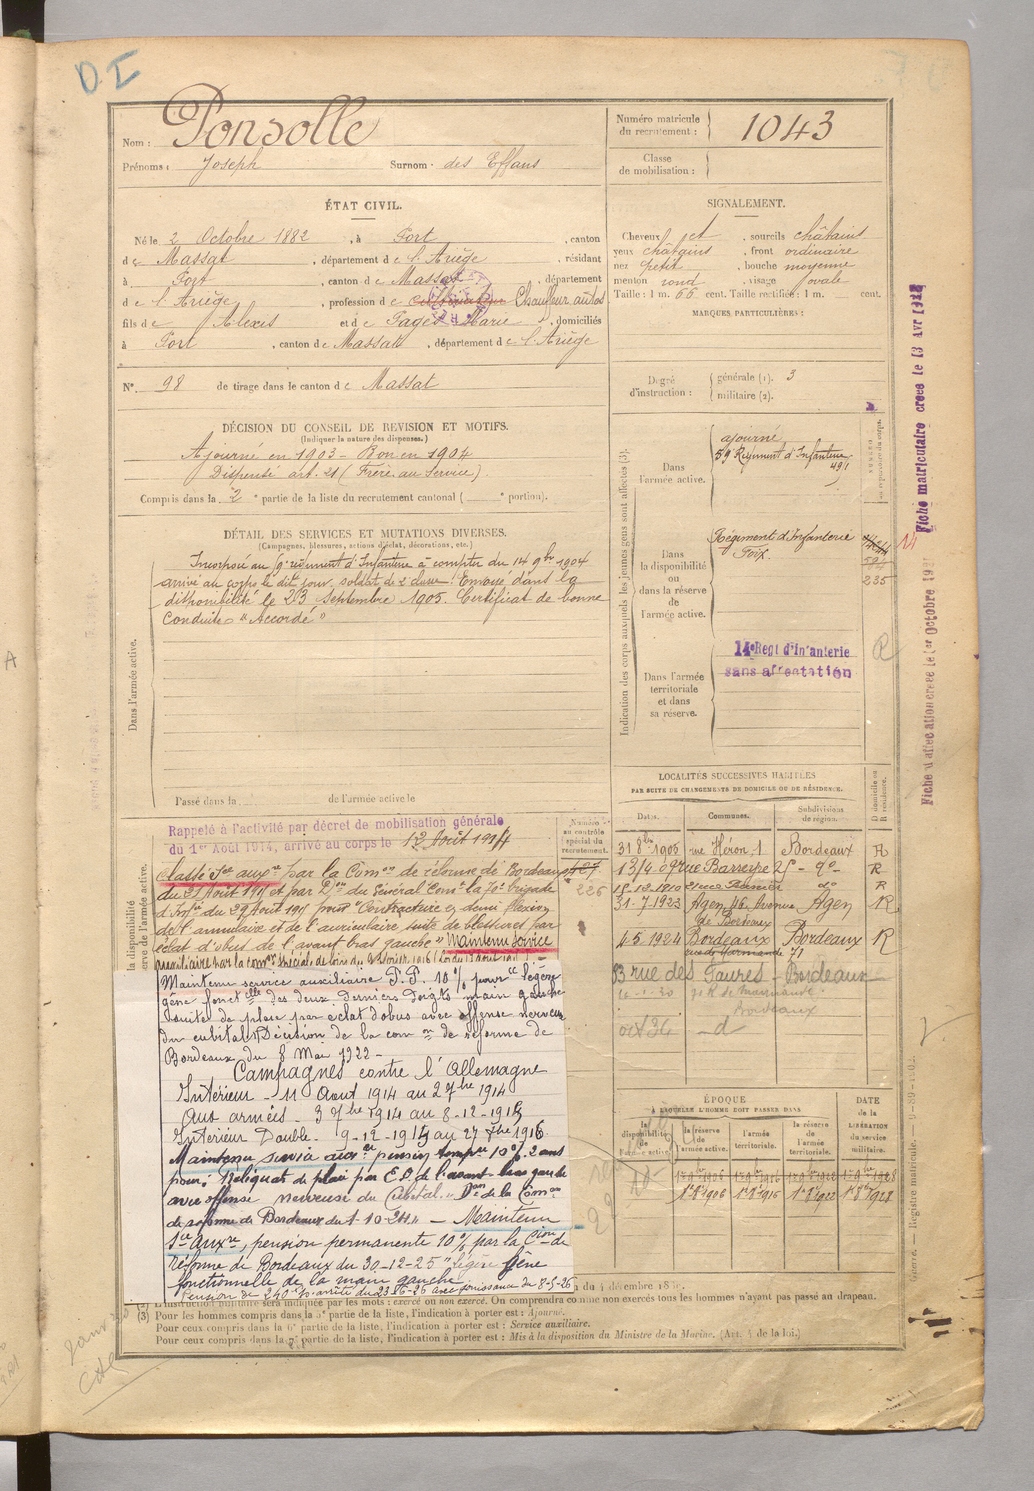 D I
Nom : Ponsolle
Prénoms : Joseph Surnom : des Effans
Numéro matricule du recrutement : 1043
Classe de mobilisation :
ÉTAT CIVIL.
Né le 2 Octobre 1882, à Port, canton
de Massat, département de l'Ariège, résidant
à Port, canton de Massat, département
de l'Ariège, profession de Cultivateur Chauffeur autos
fils de Alexis et de Pagès Marie, domiciliés
à Port, canton de Massat, département de l'Ariège
N° 98 de tirage dans le canton de Massat
SIGNALEMENT.
Cheveux et, sourcils châtains
yeux châtains, front ordinaire
nez petit, bouche moyenne
menton rond, visage ovale
Taille : 1 m. 66 cent. Taille rectifiée : 1 m. cent.
MARQUES PARTICULIÈRES :
Degré d'instruction : générale (1). 3
militaire (2).
DÉCISION DU CONSEIL DE REVISION ET MOTIFS.
(Indiquer la nature des dispenses.)
Ajourné en 1903 - Bon en 1904
Dispensé art. 21 (Frère au Service)
Compris dans la 2e partie de la liste du recrutement cantonal ( e portion).
DÉTAIL DES SERVICES ET MUTATIONS DIVERSES.
(Campagnes, blessures, actions d'éclat, décorations, etc.)
Incorporé au régiment d'Infanterie à compter du 14 9bre 1904
arrivé au corps le dit jour, soldat de 2e classe. Envoyé dans la
disponibilité le 23 Septembre 1905. Certificat de bonne
Conduite "Accordé"
Dans l'armée active.
Passé dans la de l'armée active le
Indication des corps auxquels les jeunes gens sont affectés (3).
Dans l'armée active.
ajourné
59 Régiment d'Infanterie
491
Dans la disponibilité ou dans la réserve de l'armée active.
Régiment d'Infanterie
Foix
235
Dans l'armée territoriale et dans sa réserve.
14e Regt d'Infanterie
sans affectation
R
Fiche matriculaire créée le 13 Avr
Fiche d'affectation créée le 1er Octobre
Rappelé à l'activité par décret de mobilisation générale
du 1er Août 1914, arrivé au corps le 12 Août 1914
Numéro au contrôle spécial du recrutement.
427
226
Classé Sce auxre par la Comon de réforme de Bordeaux
du 27 Août 1915 et par Don du Général Comt la 70e brigade
d'Infie du 29 Août 1915 pour "Contracture en demi flexion
de l'annulaire et de l'auriculaire suite de blessures par
éclat d'obus de l'avant bras gauche" Maintenu Service
Maintenu service auxiliaire P.P. 10% pour légère
gêne fonctelle des deux derniers doigts main gauche
suite de plaie par éclat d'obus avec offense nerveuse
du cubital. Décision de la comon de réforme de
Bordeaux du 8 Mai 1922 -
Campagnes contre l'Allemagne
Intérieur - 11 Aout 1914 au 2 7bre 1914
Aux armées - 3 7bre 1914 au 8-12-1915
Intérieur Double - 9-12-1915 au 27 1916
Maintenu service auxre pension tempre 10% 2 ans
pour : Reliquats de plaie par E.O. de l'avant-bras gauche
avec offense nerveuse du Cubital. Don de la Comon
de réforme de Bordeaux du 1-10-24 - Maintenu
Sce auxre, pension permanente 10% par la Cion de
réforme de Bordeaux du 30-12-25 "légère gêne
fonctionnelle de la main gauche
Pension de 240 fr. arrêté du 23-6-26 avec jouissance du 8-5-26
LOCALITÉS SUCCESSIVES HABITÉES
PAR SUITE DE CHANGEMENTS DE DOMICILE OU DE RÉSIDENCE.
Dates. Communes. Subdivisions de région. D domicile ou R résidence.
31 8bre 1905 rue Héron, 1 Bordeaux R
13/4 07 rue Barreyre 25 - do - R
15-12-1910 do R
31-7-1923 Agen, 46, Avenue de Bordeaux Agen R
4-5 1924 Bordeaux Bordeaux R
rue de Marmande 71
83 rue des Faures - Bordeaux
Bordeaux
oct 36 - d
ÉPOQUE
À LAQUELLE L'HOMME DOIT PASSER DANS
la disponibilité de l'armée active. la réserve de l'armée active. l'armée territoriale. la réserve de l'armée territoriale.
DATE de la LIBÉRATION du service militaire.
1er 8bre 1906 1er 8bre 1916 1er 8bre 1922 1er 8bre 1928
L'instruction militaire sera indiquée par les mots : exercé ou non exercé. On comprendra comme non exercés tous les hommes n'ayant pas passé au drapeau.
(3) Pour les hommes compris dans la 3e partie de la liste, l'indication à porter est : Ajourné.
Pour ceux compris dans la 6e partie de la liste, l'indication à porter est : Service auxiliaire.
Pour ceux compris dans la 7e partie de la liste, l'indication à porter est : Mis à la disposition du Ministre de la Marine. (Art. 4 de la loi.)